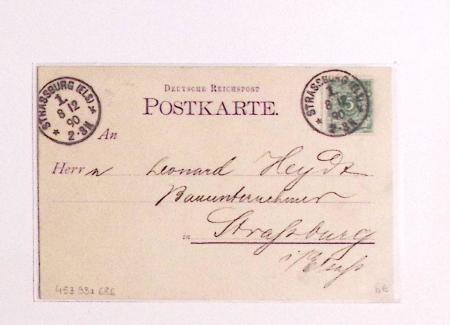 STRASSBURG (ELS)
1.
8 12
90
2-3N
STRASSBURG (ELS)
1.
8 12
90
2-3N
5
DEUTSCHE REICHSPOST
POSTKARTE.
An
Herrn Leonard Heydt
Bauunternehmer
in Straßburg
i/Elsaß